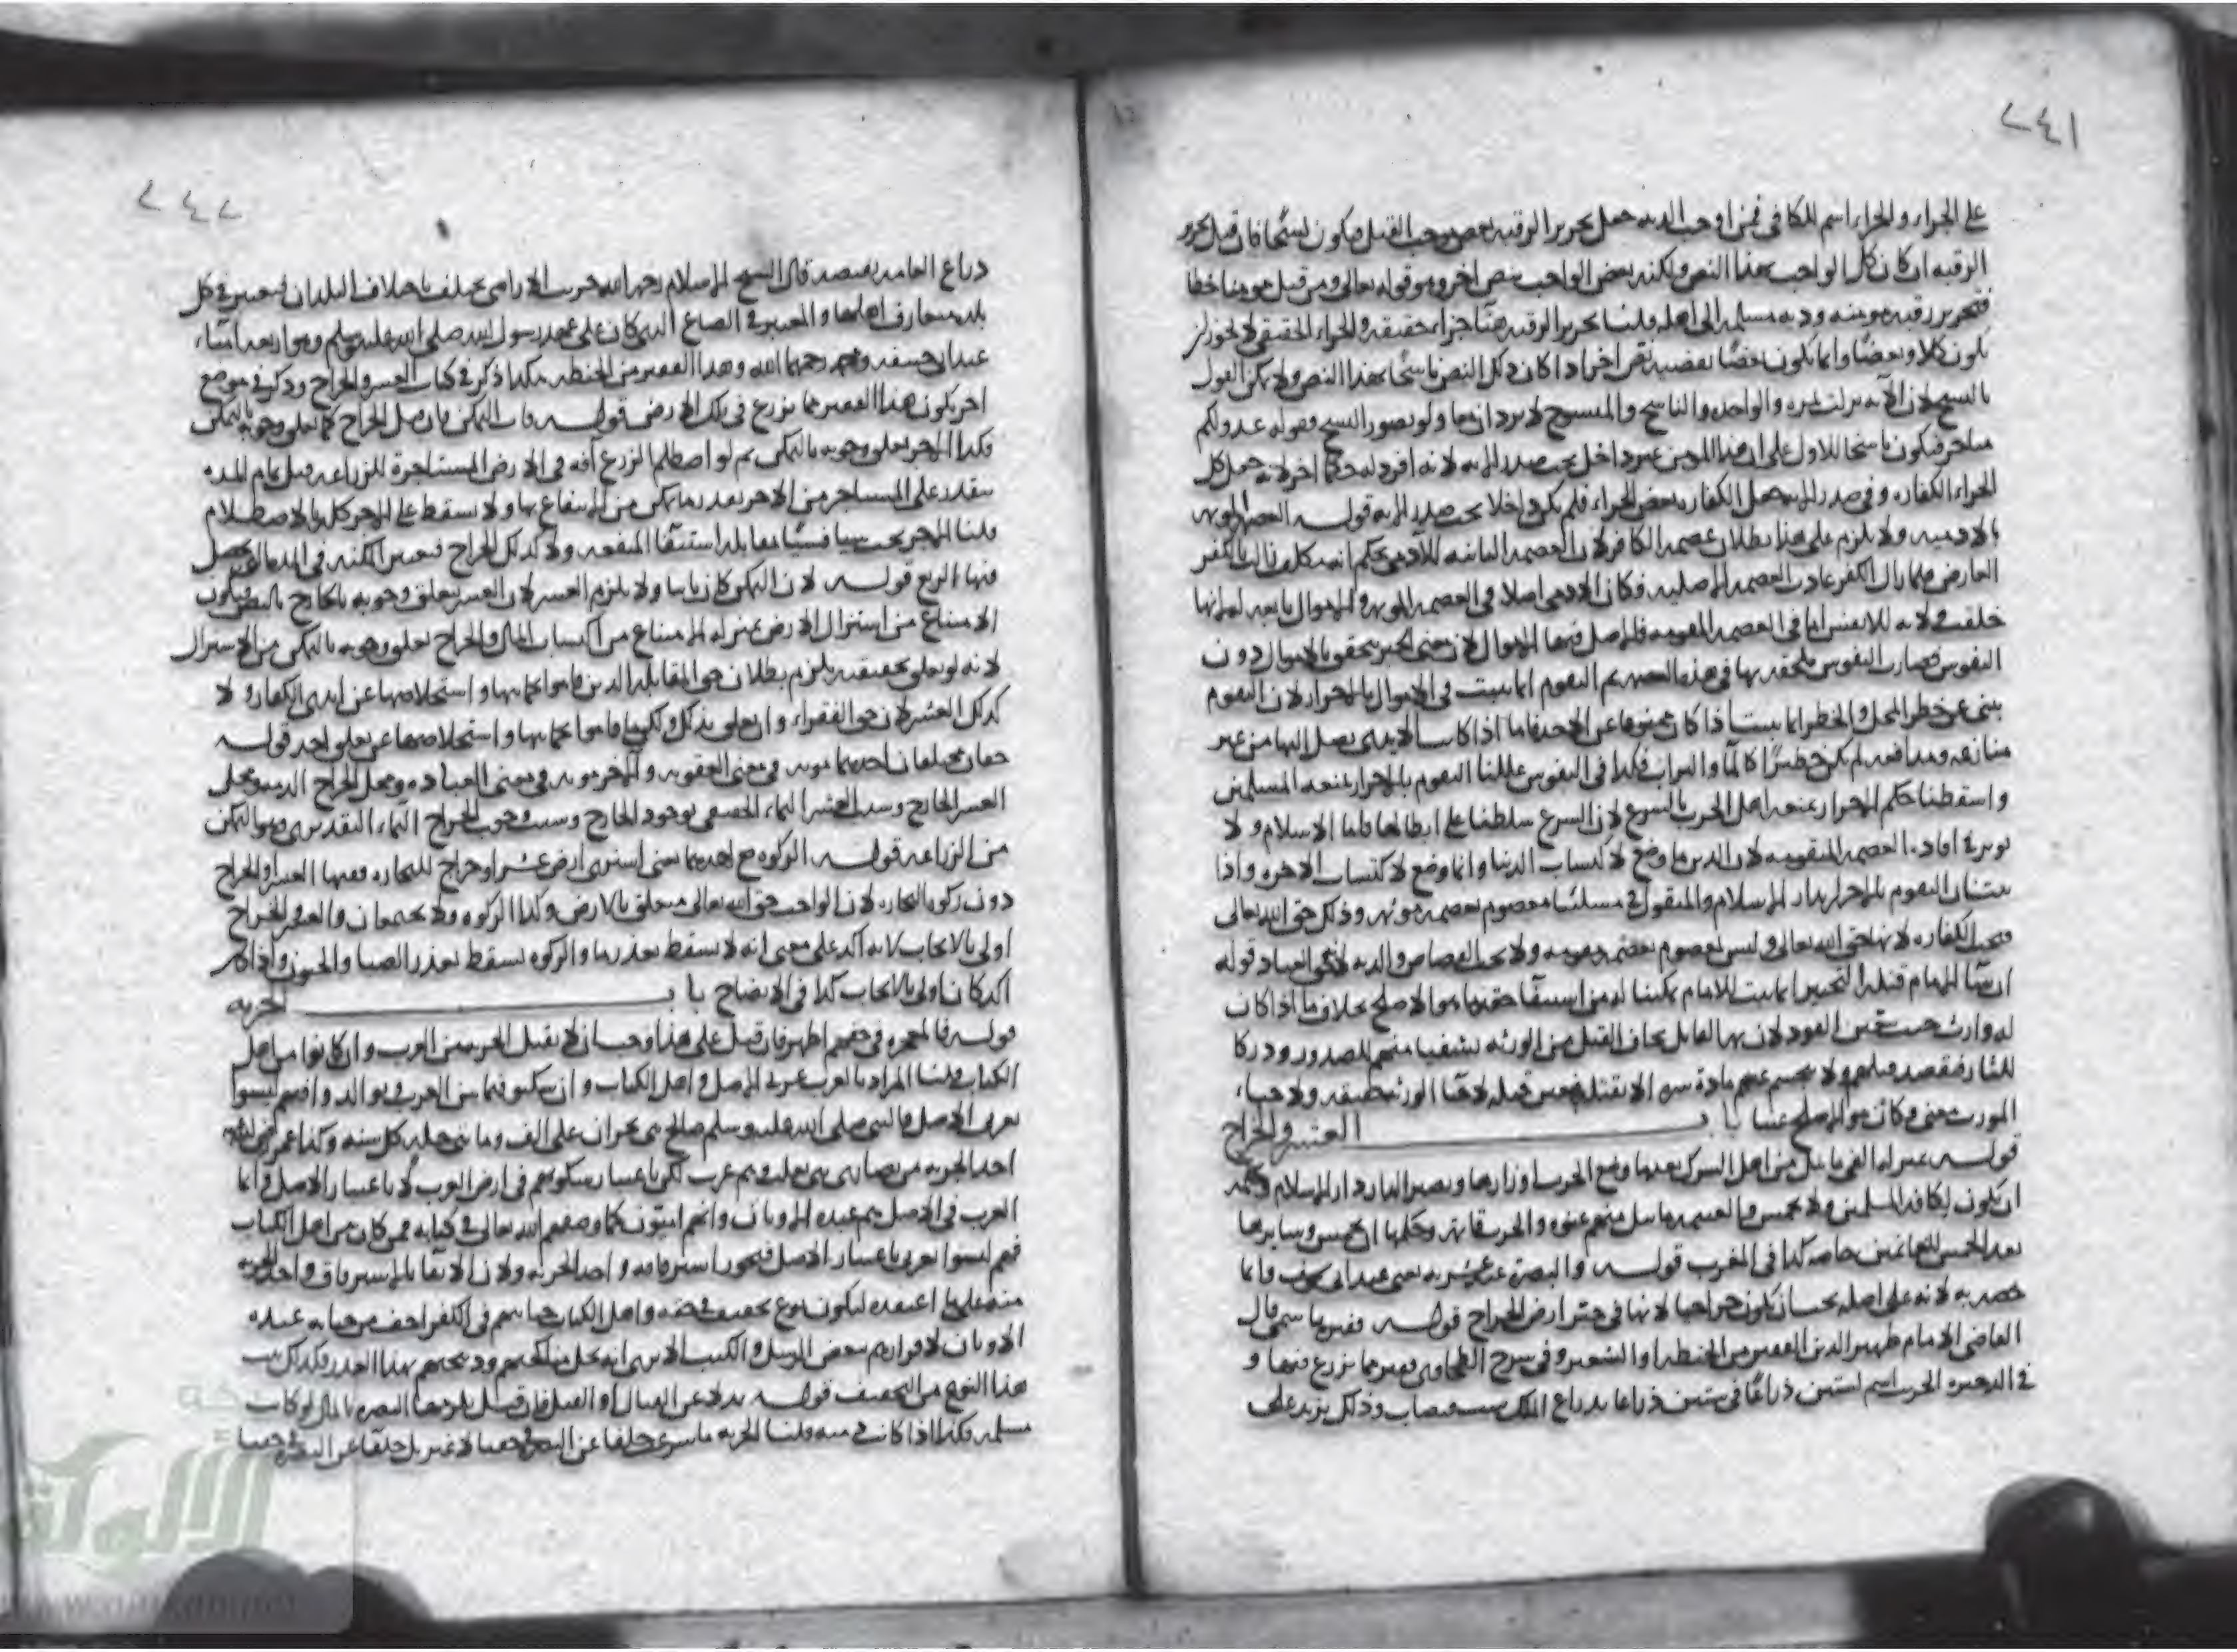 ٢٤١
على الجزاء والجزاء اسم للكافي فمن اوجب الدية جعل تحرير الرقبة بعض موجب القتل فيكون نسخا فان قيل تحرير
الرقبة ان كان كل الواجب بهذا النص ولكنه بعض الواجب بنص اخر وهو قوله تعالى ومن قتل مومنا خطا
فتحرير رقبة مومنة ودية مسلمة الى اهله قلنا تحرير الرقبة هنا جزاء حقيقة والجزاء الحقيقي لا يجوز ان
يكون كلا وبعضا وانما يكون بعضا بقضية نص اخر اذا كان ذلك النص ناسخا لهذا النص ولا يمكن القول
بالنسخ لان الآية نزلت بمرة واحدة والناسخ والمنسوخ لا يردان معا ولو تصور النسخ فقوله عدو لكم
متاخر فيكون ناسخا للاول على ان هذا المومن غير داخل تحت صدر الاية لانه افرد له حكما اخر لانه جعل كل
الجزاء الكفارة وفي صدر الاية جعل الكفارة بعض الجزاء فلم يكن داخلا تحت صدر الاية قوله العصمة الموثمة
بالادمية ولا يلزم على هذا بطلان عصمة الكافر لان العصمة الثابتة للآدمي بحكم انه مكلف زالت بالكفر
العارض فلما زال الكفر عادت العصمة الاصلية وكان الادمي اصلا في العصمة الموثمة والاموال تابعة لها لانها
خلقت لابتذال الانفس اما في العصمة المقومة فالاصل فيها الاموال لان معنى الجبر يتحقق بالاموال دون
النفوس فصارت النفوس ملحقة بها في هذه العصمة ثم التقوم انما يثبت في الاموال بالاحراز لان التقوم
ينبئ عن خطر المحل والخطر انما يثبت اذا كان ممنوعا عن الاخذ فاما اذا كانت الايدي تصل اليها من غير
منازعة ومدافعة لم يكن خطيرا كالماء والتراب فكذا في النفوس عللنا التقوم بالاحراز بمنعة المسلمين
واسقطنا حكم الاحراز بمنعة اهل الحرب بالشرع لان الشرع سلطنا على ابطالها فاما الاسلام ولا
يوثر في افادة العصمة المتقومة لان الدين ما وضع لاكتساب الدنيا وانما وضع لاكتساب الاخرة واذا
التقوم بالاحراز بدار الاسلام والمقتول في مسئلتنا معصوم بعصمة موثمة وذلك حق الله تعالى
فتجب الكفارة لانها حق الله تعالى وليس بمعصوم بعصمة مقومة ولا يجب القصاص والدية لحق العباد قوله
ان شاء الامام قتله التخيير انما يثبت للامام تمكينا له من استيفاء حقه بما هو الاصلح بخلاف ما اذا كان
له وارث حيث تعين القود لان بها القاتل يخاف القتل من الورثة تشفيا منهم للصدور ودركا
للثار فيقصد قتلهم ولا ينحسم عنهم مادة شره الا بقتله فيتعين قتله لاحياء الورثة حقيقة ولاحياء
المورث معنى وكان هو الاصلح عينا باب العشر والخراج
قوله بمنزلة الفي ما نيل من اهل الشرك بعدما وضع الحرب اوزارها وتصير الدار دار الاسلام وحكمه
ان يكون لكافة المسلمين ولا يخمس والغنيمة ما نيل منهم عنوة والحرب قائمة وحكمها ان تخمس وسايرها
بعد الخمس للغانمين خاصة كذا في المغرب قوله والبصرة عشرية يعني عند ابي يوسف وانما
خصه به لانه على اصله يجب ان يكون خراجيا لانها في حيز ارض الخراج قوله وقفيز ما سمي قال
القاضي الامام ظهير الدين القفيز من الحنطة او الشعير وفي شرح الطحاوي قفيز مما يزرع فيها و
في الذخيرة الجريب اسم لستين ذراعا في ستين ذراعا بذراع الملك سبع قبضات وذلك يزيد على
٢٤٢
ذراع العامة بقبضة قال الشيخ الاسلام رحمه الله جريب الاراضي يختلف باختلاف البلدان فيعتبر في كل
بلد متعارف اهلها والمعتبر في الصاع الذي كان على عهد رسول الله صلى الله عليه وسلم وهو اربعة امناء
عند ابي حنيفة ومحمد رحمهما الله وهذا القفيز من الحنطة هكذا ذكر في كتاب العشر والخراج وذكر في موضع
اخر يكون هذا القفيز مما يزرع في تلك الارض قوله فات التمكن فان قيل الخراج كما تعلق وجوبه بالتمكن
فكذا الاجر تعلق وجوبه بالتمكن ثم لو اصطلم الزرع آفة في الارض المستاجرة للزراعة قبل تمام المدة
يتقدر على المستاجر من الاجر بقدر ما تمكن من الانتفاع بها ولا يسقط عنه الاجر كله بالاصطلام
قلنا الاجر يجب شيا فشيا مقابلة استيفاء المنفعة ولا كذلك الخراج فيعتبر المكنة في المدة التي يحصل
فيها الريع قوله لان التمكن كان ثابتا ولا يلزم العشر لان العشر يتعلق وجوبه بالخارج بالنص فيكون
الامتناع من استنزال الارض بمنزلة الامتناع من اكتساب المال والخراج تعلق وجوبه بالتمكن من الاستنزال
لانه لو تعلق بحقيقته يلزم بطلان حق المقاتلة الذين قاموا بحمايتها واستخلاصها عن ايدي الكفار ولا
كذلك العشر لان حق الفقراء وان تعلق بذلك ولكن ما قاموا بحمايتها واستخلاصها عن تعلق احد قوله
حقان مختلفان احدهما مونة في معنى العقوبة والاخر مونة في معنى العبادة ومحل الخراج الذمة ومحل
العشر الخارج وسبب العشر النماء الحقيقي بوجود الخارج وسبب وجوب الخراج النماء التقديري وهو التمكن
من الزراعة قوله الزكوة مع احدهما يعني اشترى ارض عشر او خراج للتجارة ففيها العشر او الخراج
دون زكوة التجارة لان الواجب حق الله تعالى متعلق بالارض وكذا الزكوة ولا يجتمعان والعشر والخراج
اولى بالايجاب لانه آكد على معنى انه لا يسقط بعذر ما والزكوة تسقط بعذر الصبا والجنون واذا كان
آكد كان اولى بالايجاب كذا في الايضاح باب الجزية
قوله فالمعجزة في حقهم اظهر فان قيل على هذا وجب ان لا يقبل الجزية من العرب وان كانوا من اهل
الكتاب قلنا المراد بالعرب عربي الاصل واهل الكتاب وان سكنوا فيما بين العرب وتوالدوا فهم ليسوا
بعربي الاصل والنبي صلى الله عليه وسلم صالح بني نجران على الف وماتي حلة كل سنة وكذا عمر رضي الله عنه
اخذ الجزية من نصارى بني تغلب وهم عرب لكن باعتبار سكونهم في ارض العرب لا باعتبار الاصل وانما
العرب في الاصل هم عبدة الاوثان وانهم اميون كما وصفهم الله تعالى في كتابه فمن كان من اهل الكتاب
فهم ليسوا بعربي باعتبار الاصل فيجوز استرقاقه واخذ الجزية ولان الابقاء بالاسترقاق واخذ الجزية
منه على ما اعتقده ليكون نوع تخفيف في حقه واهل الكتاب جنايتهم في الكفر اخف من جناية عبدة
الاوثان لاقرارهم ببعض الرسل والكتب الا ترى انه تحل مناكحتهم وذبيحتهم بهذا القدر فكذلك يثبت
هذا النوع من التخفيف قوله بدلا عن القتال او القتل فان قيل يلزمها النصرة بالمال لو كانت
مسلمة فكذا اذا كانت ذمية قلنا الجزية ما شرعت خلفا عن النصرة جميعا لا غير بل خلفا عن النصرة جميعا